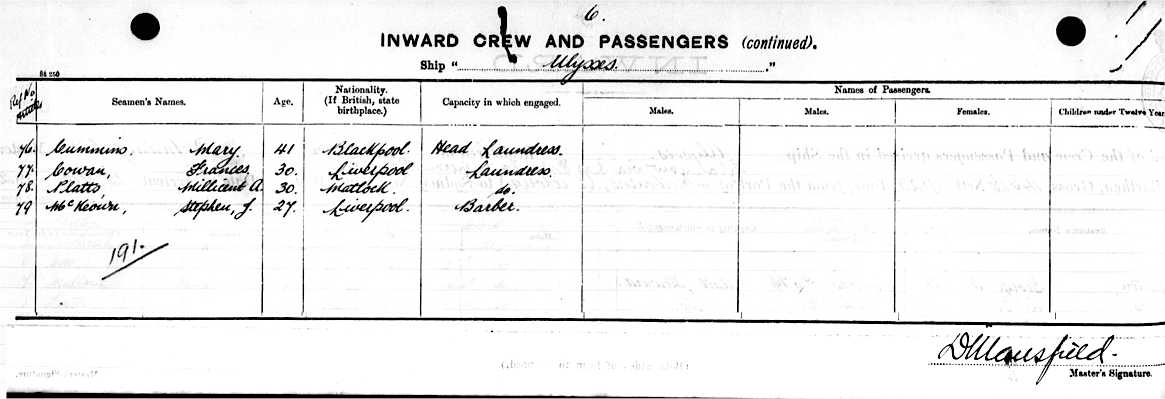 6.
INWARD CREW AND PASSENGERS (continued).
Ship "Ulysses."
84 250
Ref No
Seamen's Names. Age. Nationality. (If British, state birthplace.) Capacity in which engaged. Names of Passengers.
Males. Males. Females. Children under Twelve Year
76. Cummins. Mary. 41 Blackpool. Head Laundress.
77. Cowan, Frances. 30. Liverpool Laundress.
78. Platts Millicent A. 30. Matlock. do.
79 McKeown, Stephen, J. 27. Liverpool. Barber.
191.
D Mansfield.
Master's Signature.